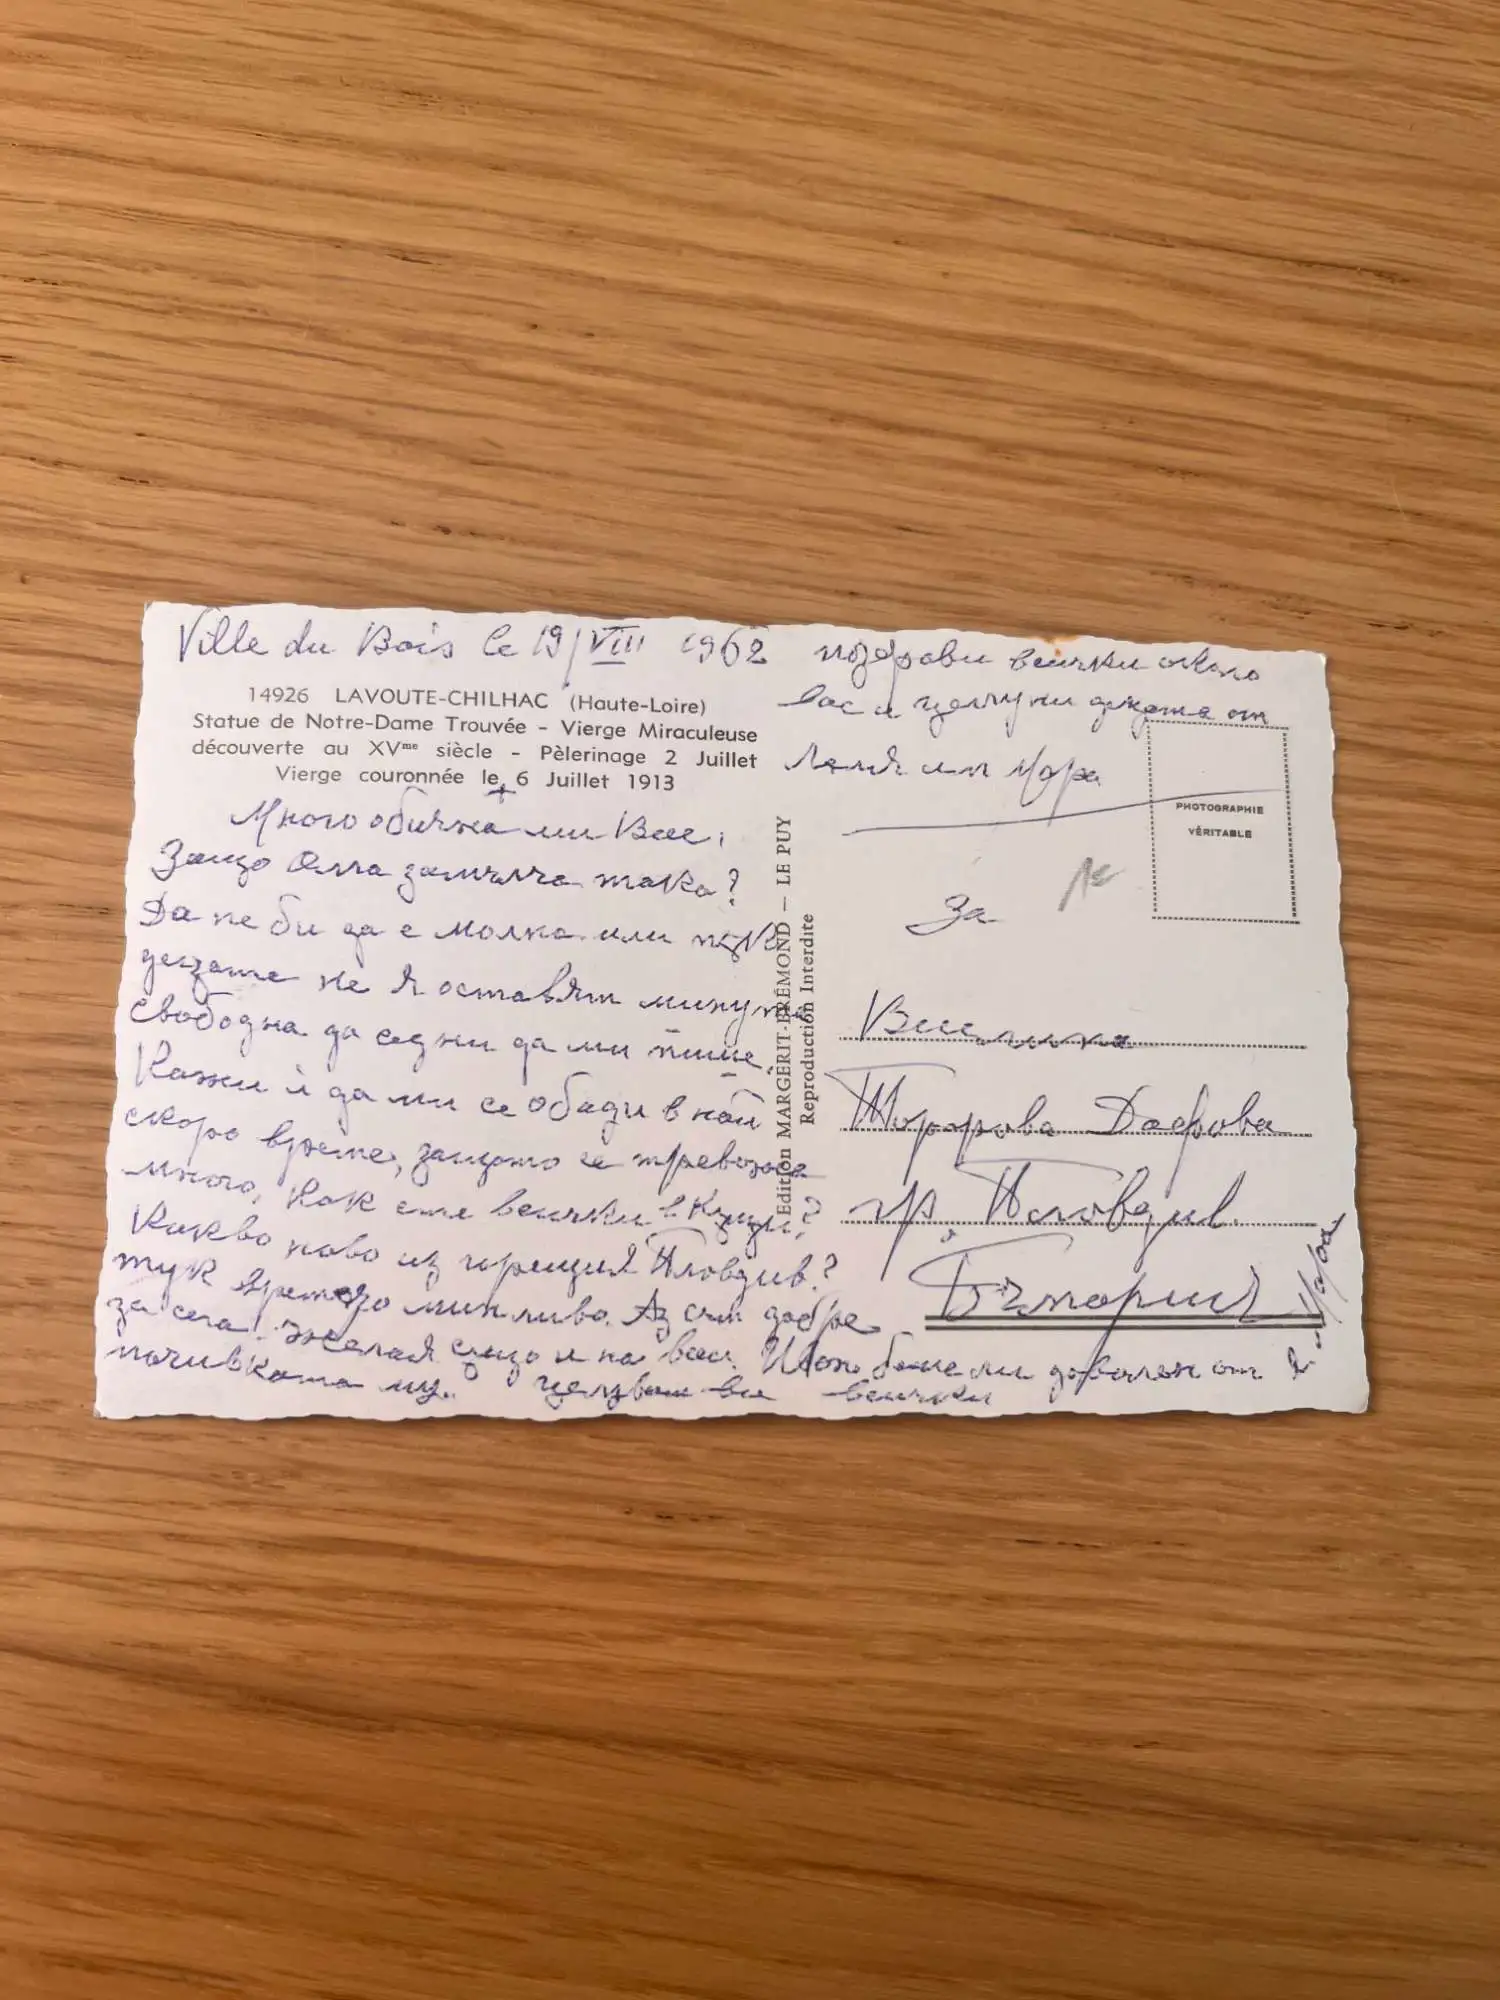 Ville du Bois le 19/VIII 1962
14926 LAVOUTE-CHILHAC (Haute-Loire)
Statue de Notre-Dame Trouvée - Vierge Miraculeuse
découverte au XVme siècle - Pèlerinage 2 Juillet
Vierge couronnée le 6 Juillet 1913
Много обична ми Вее,
Защо Олга замълча така?
Да не би да е молка или пък
децата не я оставят минута
свободна да седни да ми пише.
Кажи ѝ да ми се обади в най
скоро време, защото се тревожа
много, как сте всички в Къщи?
Какво ново из горещия Пловдив?
тук времето минливо. Аз съм добре
за сега. Желая също и на вас. бише ли доволен от
почивката му. целувам ви всички
поздрави всички около
вас и целуни децата от
Леля им Мара
Edition MARGERIT-BRÉMOND - LE PUY
Reproduction Interdite
PHOTOGRAPHIE
VÉRITABLE
За
Веселина
Тодорова Дафова
гр. Пловдив.
Мара